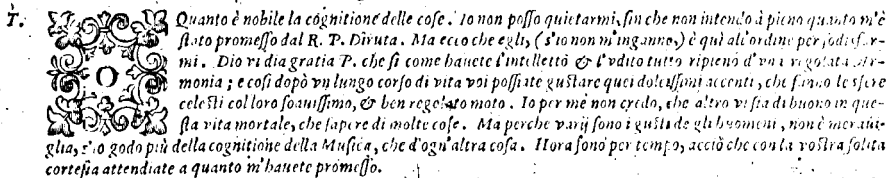 T. O Quanto è nobile la cognitione delle cose. Io non posso quietarmi, sin che non intendo à pieno quanto m'è
stato promesso dal R. P. Diruta. Ma ecco che egli, (s'io non m'inganno,) è quì all'ordine per sodisfar-
mi. Dio vi dia gratia P. che si come hauete l'intelletto & l'vdito tutto ripieno d'vna regolata Ar-
monia; e così dopò vn lungo corso di vita voi possiate gustare quei dolcissimi accenti, che fanno le sfere
celesti col loro soauissimo, & ben regolato moto. Io per me non credo, che altro vi sia di buono in que-
sta vita mortale, che sapere di molte cose. Ma perche varij sono i gusti de gli huomeni, non è meraui-
glia, s'io godo più della cognitione della Musica, che d'ogn'altra cosa. Hora sono per tempo, acciò che con la vostra solita
cortesia attendiate a quanto m'hauete promesso.